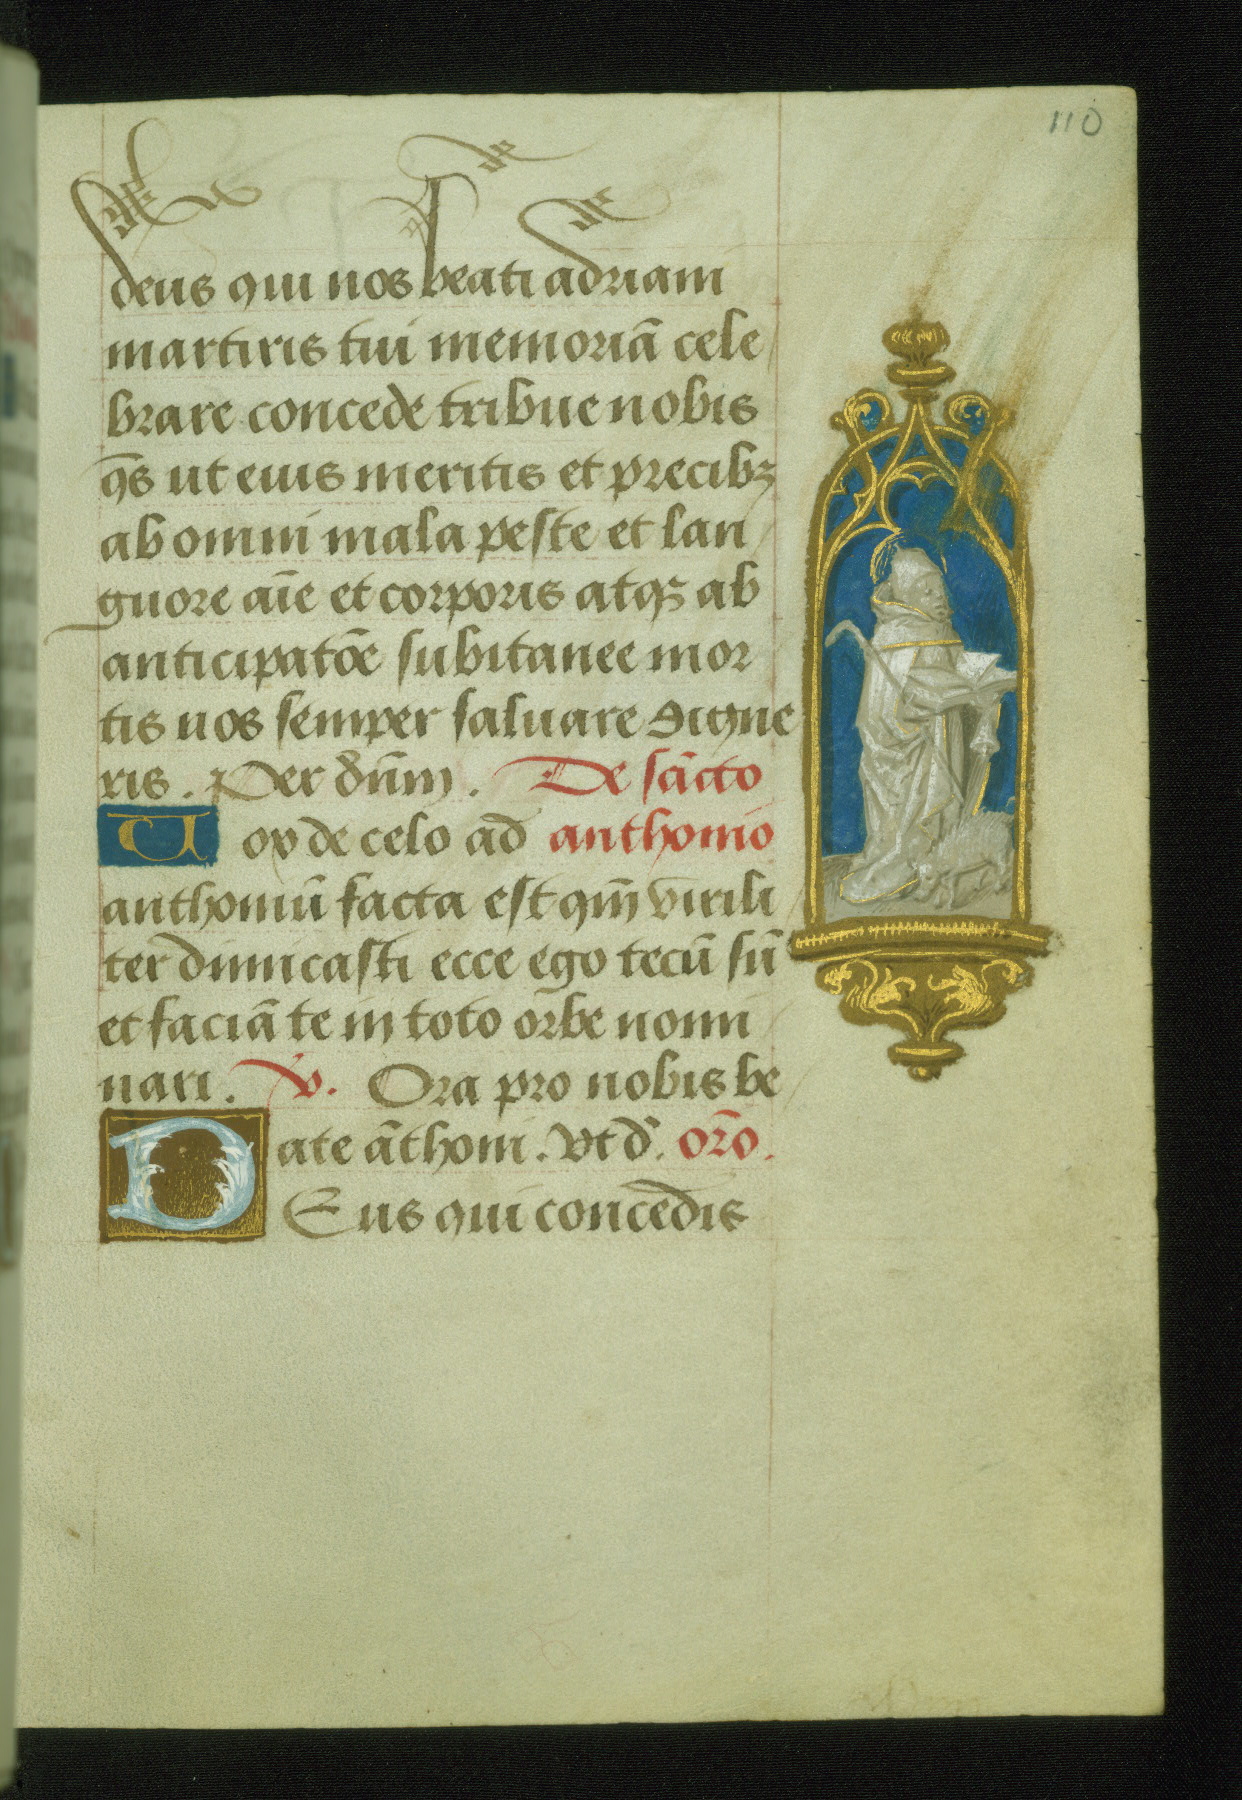 110
deus qui nos beati adriani
martiris tui memoriā cele
brare concede tribue nobis
q̄s ut eius meritis et precibꝫ
ab omni mala peste et lan
guore aīe et corporis atqꝫ ab
anticipatōe subitanee mor
tis nos semper saluare digne
ris. Per dn̄m. De scācto
Vox de celo ad anthonio
anthoniū facta est qm̄ virili
ter dimicasti ecce ego tecū sū
et faciā te in toto orbe nomi
nari. V. Ora pro nobis be
ate āthoni. Vt d. orō.
DEus qui concedis